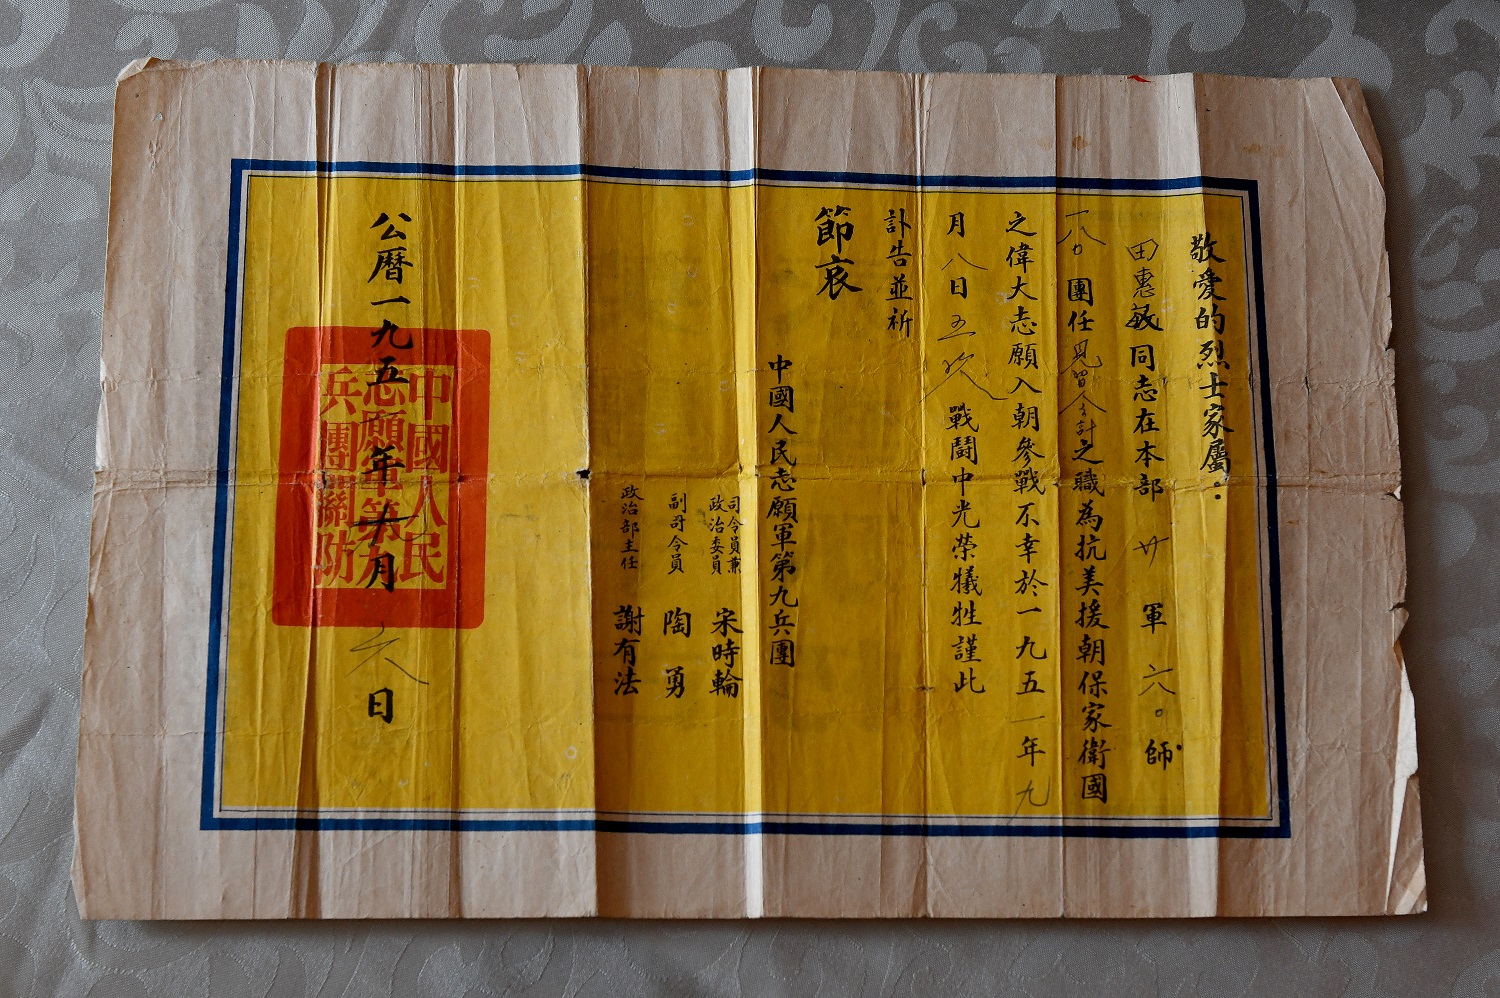 敬愛的烈士家屬：
田惠敏同志在本部 廿 軍 六〇師
一八〇團任見習会計之職為抗美援朝保家衛國
之偉大志願入朝參戰不幸於一九五一年九
月八日五次戰鬪中光榮犧牲謹此
訃告並祈
節哀
中國人民志願軍第九兵團
司令員兼
政治委員 宋時輪
副司令員 陶勇
政治部主任 謝有法
公曆一九五 年十月 六日
中國人民
志願軍第九
兵團關防